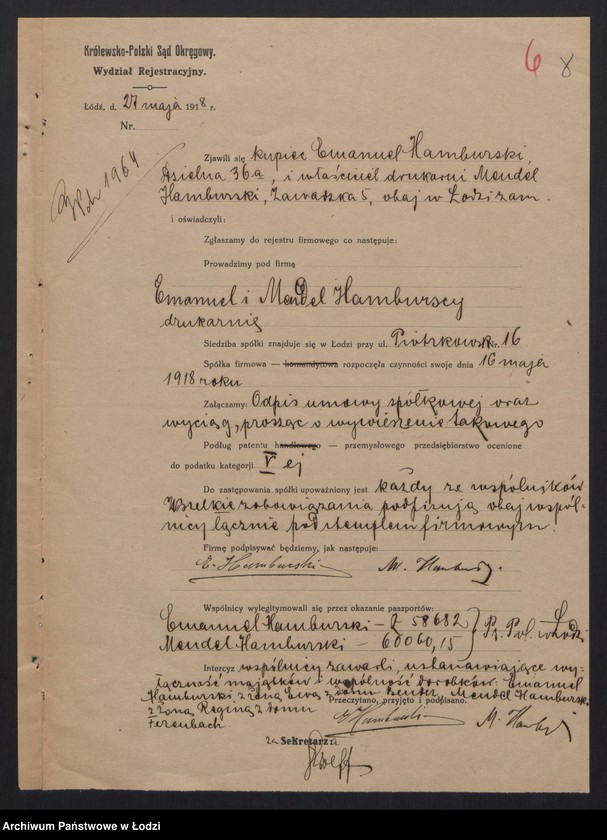 Królewsko-Polski Sąd Okręgowy.
Wydział Rejestracyjny.
6 8
Łódź, d. 27 maja 1918 r.
Nr.
1964
Zjawili się kupiec Emanuel Hamburski,
Dzielna 36a, i właściciel drukarni Mendel
Hamburski, Zawadzka 5, obaj w Łodzi zam.
i oświadczyli:
Zgłaszamy do rejestru firmowego co następuje:
Prowadzimy pod firmą
Emanuel i Mendel Hamburscy
drukarnię
Siedziba spółki znajduje się w Łodzi przy ul. Piotrkowsk. Nr. 16
Spółka firmowa — komandytowa rozpoczęła czynności swoje dnia 16 maja
1918 roku
Załączamy: Odpis umowy spółkowej oraz
wyciąg, prosząc o wywieszenie takowego
Podług patentu handlowego — przemysłowego przedsiębiorstwo ocenione
do podatku kategorji V ej
Do zastępowania spółki upoważniony jest każdy ze wspólników
Wszelkie zobowiązania podpisują obaj wspól-
nicy łącznie pod stemplem firmowym.
Firmę podpisywać będziemy, jak następuje:
E. Hamburski M. Hamburski
Wspólnicy wylegitymowali się przez okazanie paszportów:
Emanuel Hamburski — 58682
Mendel Hamburski — 60060,15 Pr. Pol. w Łodzi
Intercyz wspólnicy zawarli, ustanawiające wy-
łączność majątków i wspólność dorobków: Emanuel
Hamburski z żoną Ewą z domu Mendel Hamburski
Przeczytano, przyjęto i podpisano.
z żoną Reginą z domu
E. Hamburski M. Hamburski
za Sekretarz
Archiwum Państwowe w Łodzi